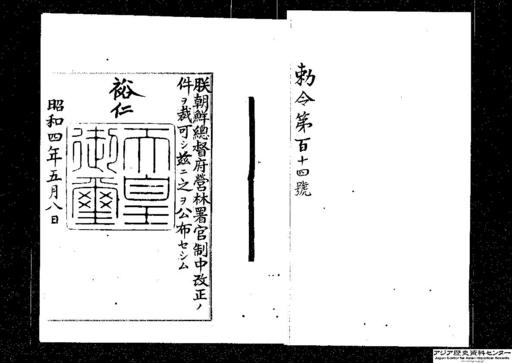 勅令第百十四號
朕朝鮮總督府營林署官制中改正ノ
件ヲ裁可シ玆ニ之ヲ公布セシム
裕仁
天皇
御璽
昭和四年五月八日
アジア歴史資料センター
Japan Center for Asian Historical Records